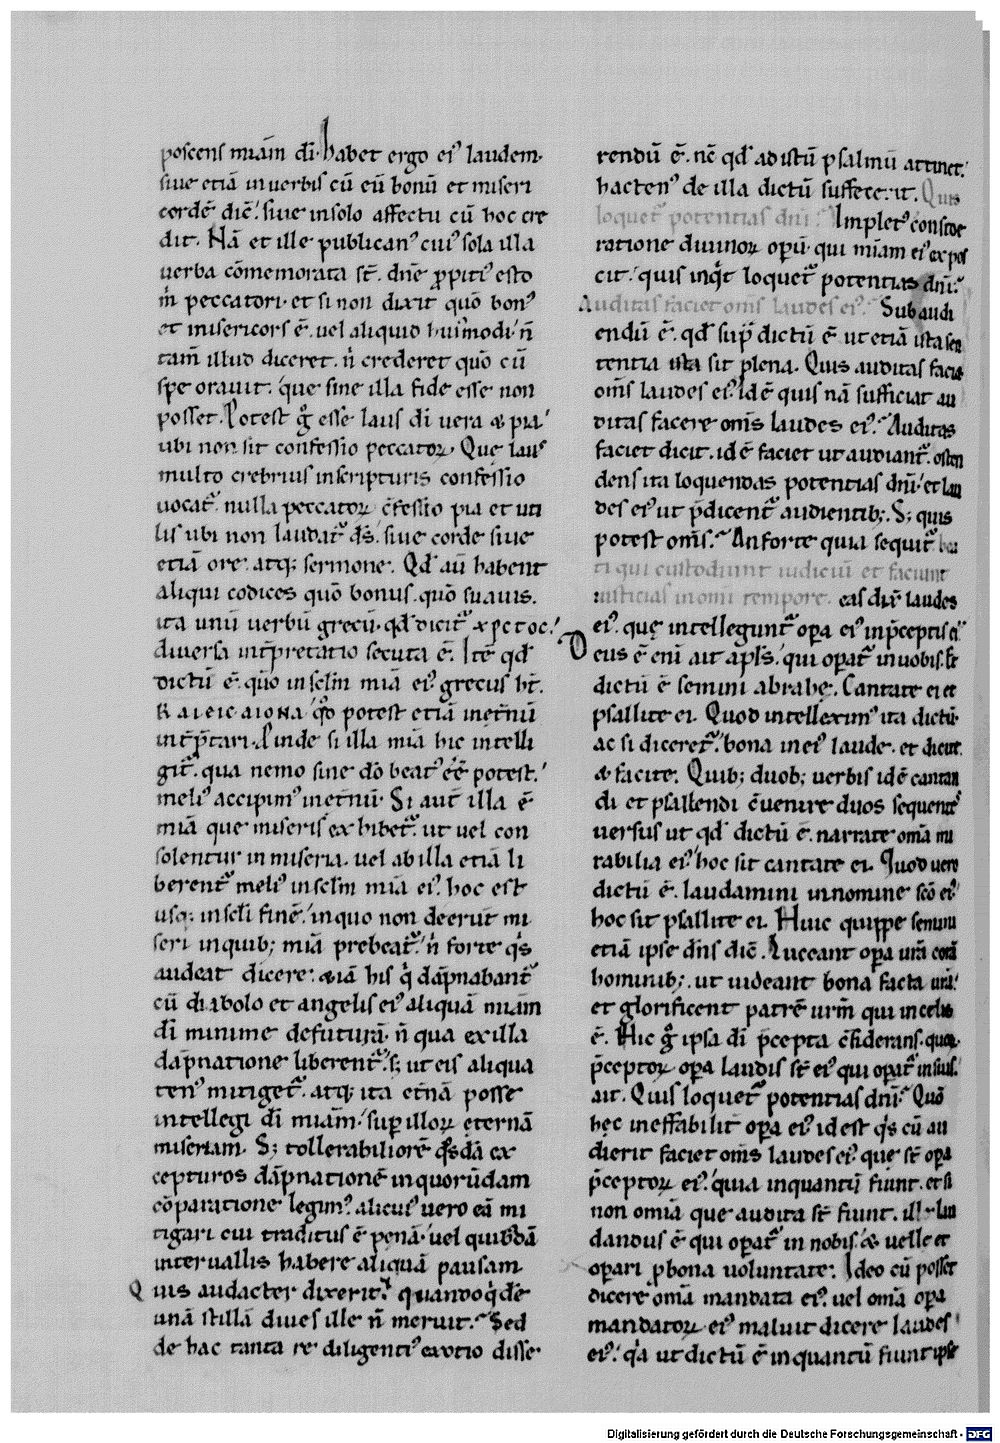 poscens miãm dĩ. habet ergo eiꝰ laudem.
siue etiã in uerbis cũ eũ bonũ et miseri
cordẽ dic̃. siue in solo affectu cũ hoc cre
dit. Nã et ille publicanꝰ cuiꝰ sola illa
uerba cõmemorata st̃. dñe ꝓpitiꝰ esto
m̃ peccatori. et si non dixit quõ bonꝰ
et misericors ẽ. uel aliquid huiꝰmodi. ñ
tam̃ illud diceret. ñ crederet quõ cũ
spe orauit. que sine illa fide esse non
posset. Potest g̃ esse laus dĩ uera & pia.
ubi non sit confessio peccatoꝝ. Que lausꝰ
multo crebrius in scripturis confessio
uocat᷑. nulla peccatoꝝ c̃fessio pia et uti
lis ubi non laudat᷑ d̃s. siue corde siue
etiã ore. atqꝫ sermone. Qd̃ aũ habent
aliqui codices quõ bonus. quõ suauis.
ita unũ uerbũ grecũ. qd̃ dicit᷑ xpctoc.
diuersa int̃pretatio secuta ẽ. Itẽ qd̃
dictũ ẽ. quõ in sclm̃ miã eiꝰ. grecus ht̃.
ΚΑΙΕΙC ΑΙΩΝΑ. qd̃ potest etiã inet̃nũ
int̃p̃tari. Proinde si illa miã hic intelli
git᷑. qua nemo sine dõ beatꝰ eẽ potest.
meliꝰ accipimꝰ inet̃nũ. Si aut̃ illa ẽ
miã que miseris exhibet᷑. ut uel con
solentur in miseria. uel ab illa etiã li
berent᷑ meliꝰ in sclm̃ miã eiꝰ. hoc est
usqꝫ in scl̃i finẽ. in quo non deerũt mi
seri in quibꝫ miã prebeat᷑. ñ forte q̃s
audeat dicere. etiã his q̃ dãpnabant᷑
cũ diabolo et angelis eiꝰ aliquã miãm
dĩ minime defuturã. ñ qua ex illa
dãpnatione liberent᷑. sꝫ ut eis aliqua
tenꝰ mitiget᷑. atqꝫ ita et̃nã posse
intellegi dĩ miãm. suꝑ illoꝝ ęternã
miseriam. Sꝫ tollerabiliorẽ q̃sdã ex
cepturos dãpnationẽ in quorũdam
cõparatione legimꝰ. alicuiꝰ uero eã mi
tigari cui traditus ẽ penã. uel quibꝰdã
interuallis habere aliquã pausam
Quis audacter dixerit. quando q̃dẽ
unã stillã diues ille ñ meruit. Sed
de hac tanta re diligentiꝰ ex otio disse
rendũ ẽ. nc̃ qd̃ ad istũ psalmũ attinet.
hactenꝰ de illa dictũ suffecerit. Quis
loquet᷑ potentias dñi. Impletꝰ conside
ratione diuinoꝝ opũ. qui miãm eiꝰ expos
cit. quis inq̃t loquet᷑ potentias dñi.
Auditas faciet om̃s laudes eiꝰ. Subaudi
endũ ẽ. qd̃ sup̃ dictũ ẽ. ut etiã ista sen
tentia ista sit plena. Quis auditas facie
om̃s laudes eiꝰ. id ẽ quis nã sufficiat au
ditas facere om̃s laudes eiꝰ. Auditas
faciet dicit. id ẽ faciet ut audiant᷑. osten
dens ita loquendas potentias dñi. et lau
des eiꝰ ut p̃dicent᷑ audientibꝫ. Sꝫ quis
potest om̃s. An forte quia sequit᷑ bea
ti qui custodiunt iudiciũ et faciunt
iusticias in omi tempore. eas dix̃ laudes
eiꝰ. quę intellegunt᷑ oꝑa eiꝰ in p̃ceptis eiꝰ
Deus ẽ enĩ ait apl̃s. qui oꝑat᷑ in uobis. Sic
dictũ ẽ semini abrahe. Cantate ei et
psallite ei. Quod intelleximꝰ ita dictũ.
ac si diceret᷑. bona in eiꝰ laude. et dicite.
& facite. Quibꝫ duobꝫ uerbis idẽ cantan
di et psallendi c̃uenire duos sequentes
uersus ut qd̃ dictũ ẽ. narrate om̃ia mi
rabilia eiꝰ. hoc sit cantate ei. Quod uero
dictũ ẽ. laudamini in nomine sc̃o eiꝰ.
hoc sit psallite ei. Huic quippe semini
etiã ipse dñs dic̃. Luceant oꝑa ur̃a corã
hominibꝫ. ut uideant bona facta ur̃a.
et glorificent patrẽ ur̃m qui in celis
ẽ. Hic g̃ ipsa dĩ p̃cepta c̃siderans. quoꝝ
p̃ceptoꝝ oꝑa laudis st̃ eiꝰ qui oꝑat᷑ in suis.
ait. Quis loquet᷑ potentias dñi. Quõ
hęc ineffabilit̃ oꝑa eiꝰ id est q̃s cũ au
dierit faciet om̃s laudes eiꝰ. que st̃ oꝑa
p̃ceptoꝝ eiꝰ. quia in quantũ fiunt. et si
non omiã que audita st̃ fiunt. ille lau
dandus ẽ qui oꝑat᷑ in nobis. & uelle et
oꝑari ꝓ bona uoluntate. Ideo cũ posset
dicere omiã mandata eiꝰ. uel omiã oꝑa
mandatoꝝ eiꝰ maluit dicere laudes
eiꝰ. q̃a ut dictũ ẽ in quantũ fiunt ipse
Digitalisierung gefördert durch die Deutsche Forschungsgemeinschaft - DFG